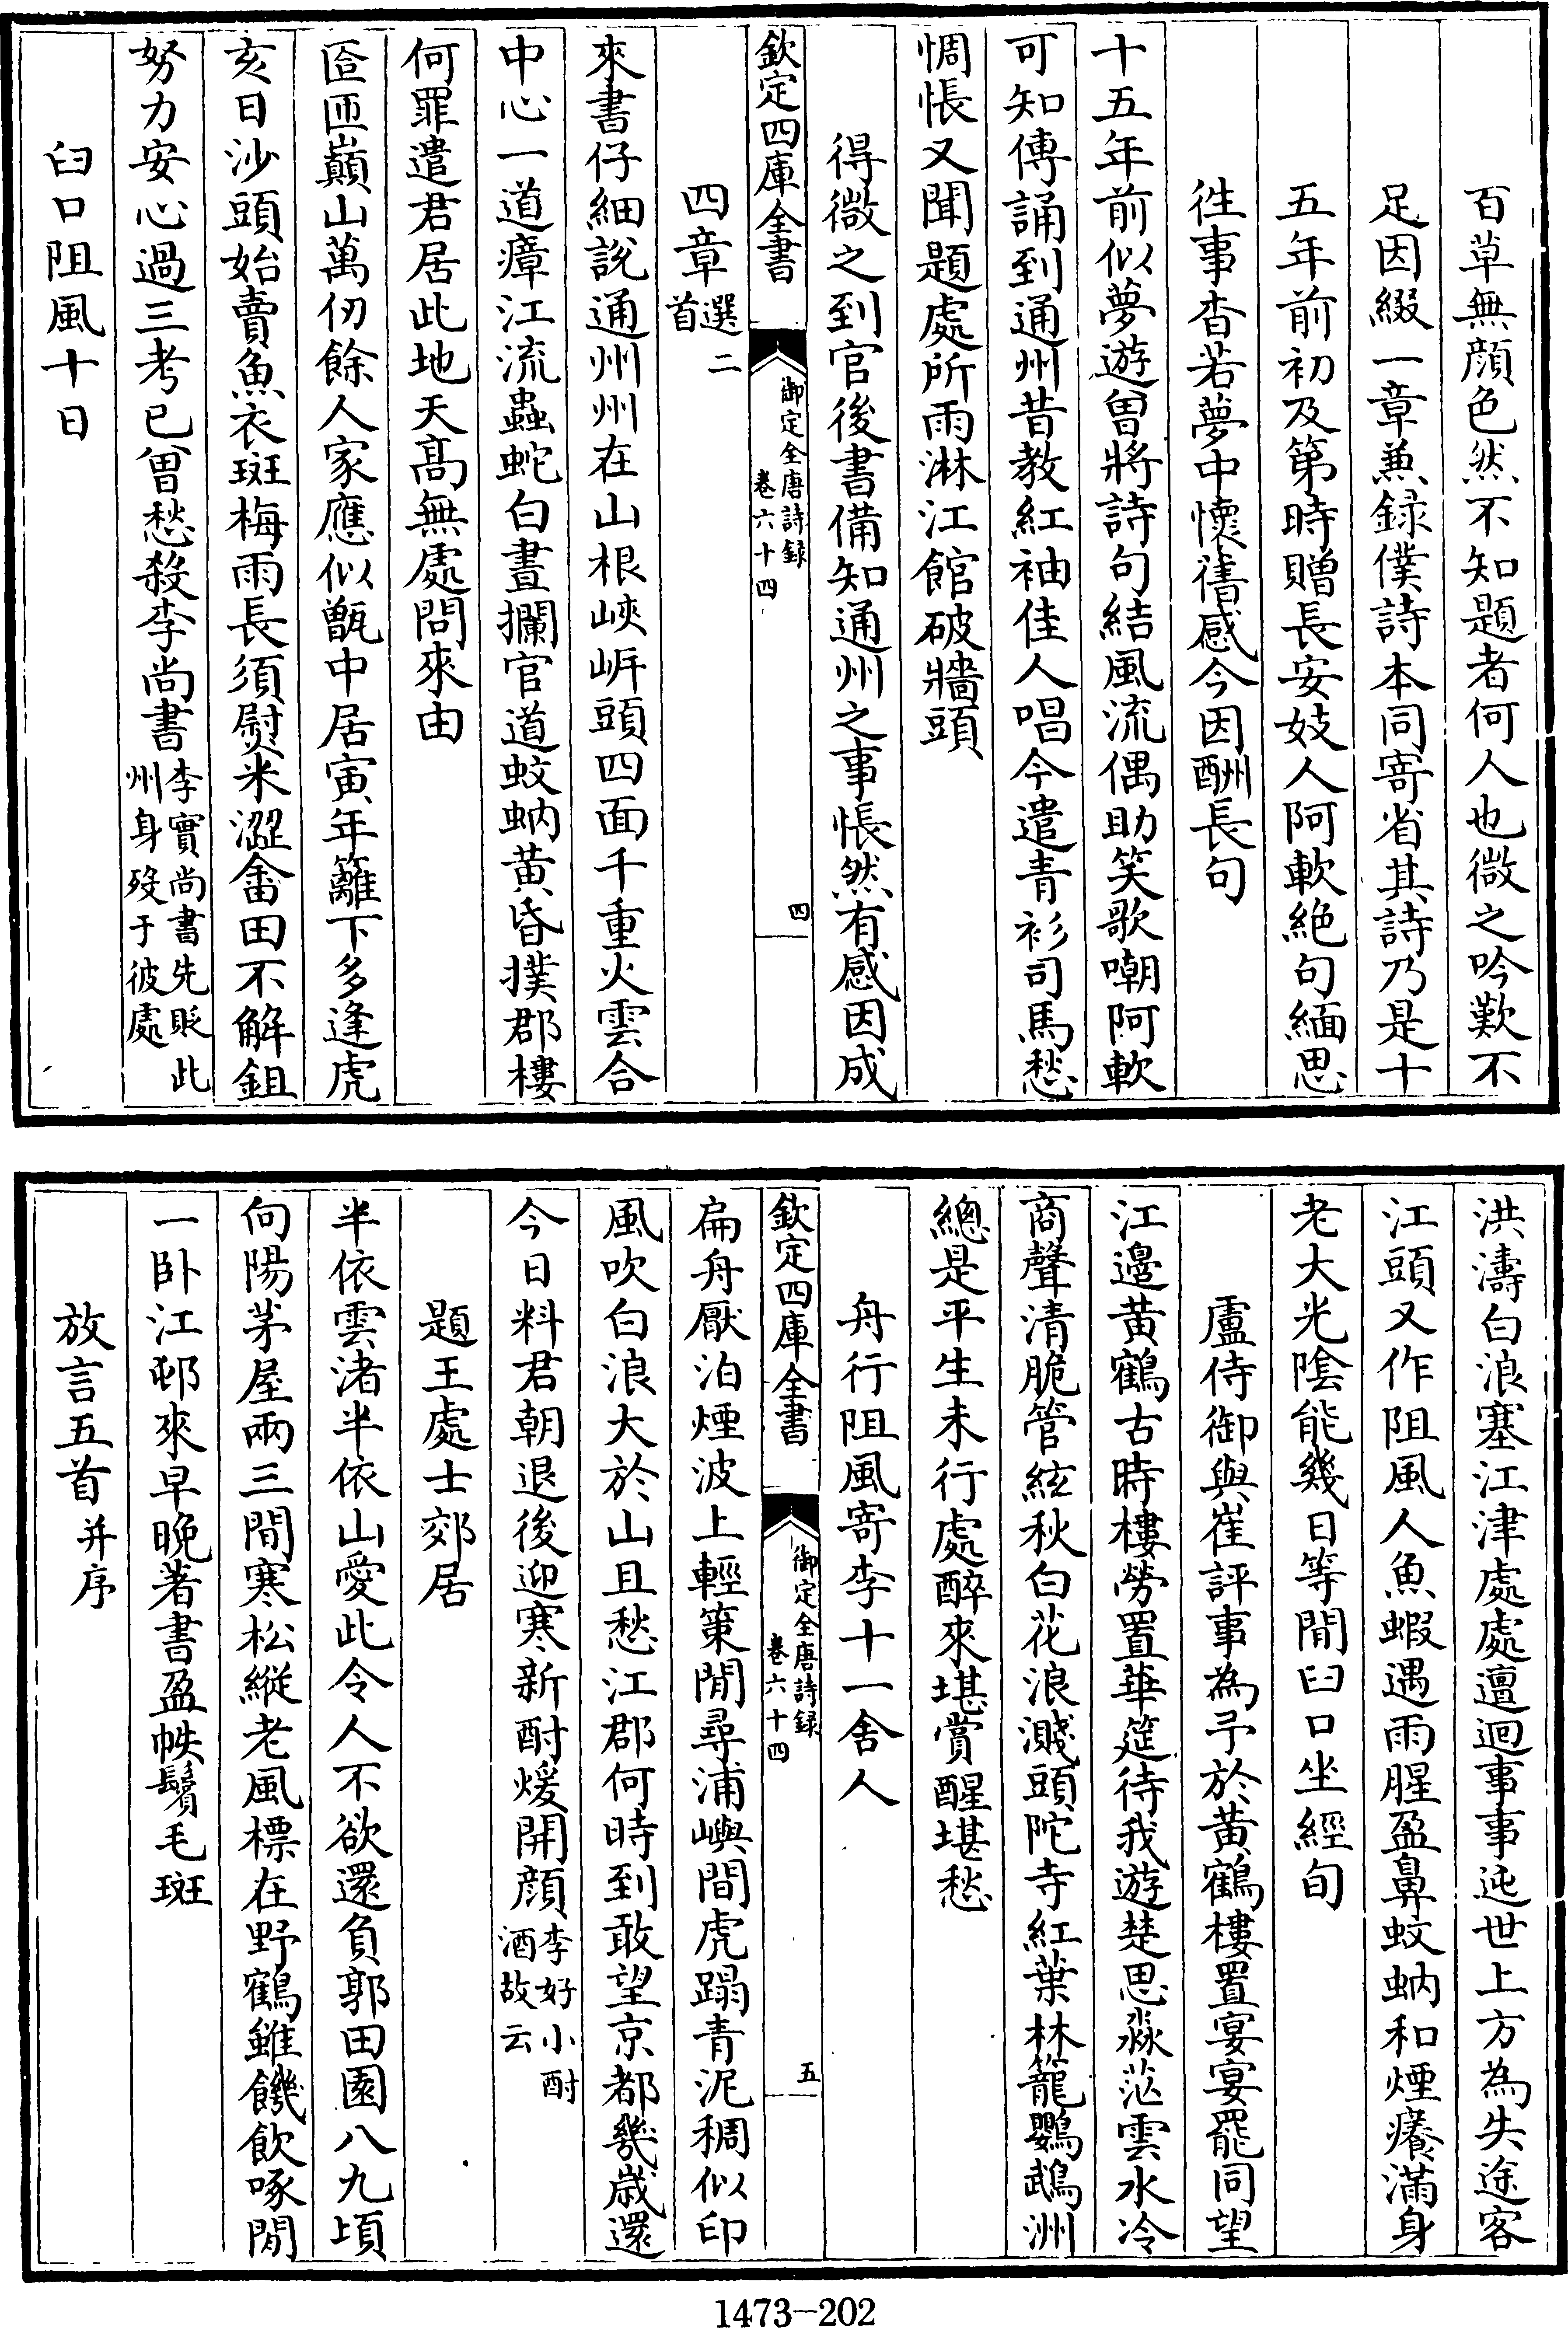 百草無顔色然不知題者何人也微之吟歎不
足因綴一章兼録僕詩本同寄省其詩乃是十
五年前初及第時贈長安妓人阿軟絶句緬思
往事杳若夢中懷舊感今因酬長句
十五年前似夢遊曾將詩句結風流偶助笑歌嘲阿軟
可知傳誦到通州昔教紅袖佳人唱今遣青衫司馬愁
惆悵又聞題處所雨淋江館破牆頭
得微之到官後書備知通州之事悵然有感因成
欽定四庫全書
御定全唐詩録
卷六十四
四
四章選二首
來書仔細說通州州在山根峽岍頭四面千重火雲合
中心一道瘴江流蟲蛇白晝攔官道蚊蚋黄昏撲郡樓
何罪遣君居此地天髙無處問來由
匼匝巔山萬仞餘人家應似甑中居寅年籬下多逢虎
亥日沙頭始賣魚衣斑梅雨長須熨米澀畬田不解鉏
努力安心過三考已曾愁殺李尚書李實尚書先貶此州身殁于彼處
臼口阻風十日
洪濤白浪塞江津處處邅迴事事迍世上方為失途客
江頭又作阻風人魚蝦遇雨腥盈鼻蚊蚋和煙癢滿身
老大光陰能幾日等閒臼口坐經旬
盧侍御與崔評事為予於黄鶴樓置宴宴罷同望
江邊黄鶴古時樓勞置華筵待我遊楚思淼茫雲水冷
商聲清脆管絃秋白花浪濺頭陀寺紅葉林籠鸚鵡洲
總是平生未行處醉來堪賞醒堪愁
舟行阻風寄李十一舍人
欽定四庫全書
御定全唐詩録
卷六十四
五
扁舟厭泊煙波上輕策閒尋浦嶼間虎蹋青泥稠似印
風吹白浪大於山且愁江郡何時到敢望京都幾歲還
今日料君朝退後迎寒新酎煖開顔李好小酎酒故云
題王處士郊居
半依雲渚半依山愛此令人不欲還負郭田園八九頃
向陽茅屋兩三間寒松縱老風標在野鶴雖饑飲啄閒
一卧江邨來早晚著書盈帙鬢毛斑
放言五首并序
1473-202